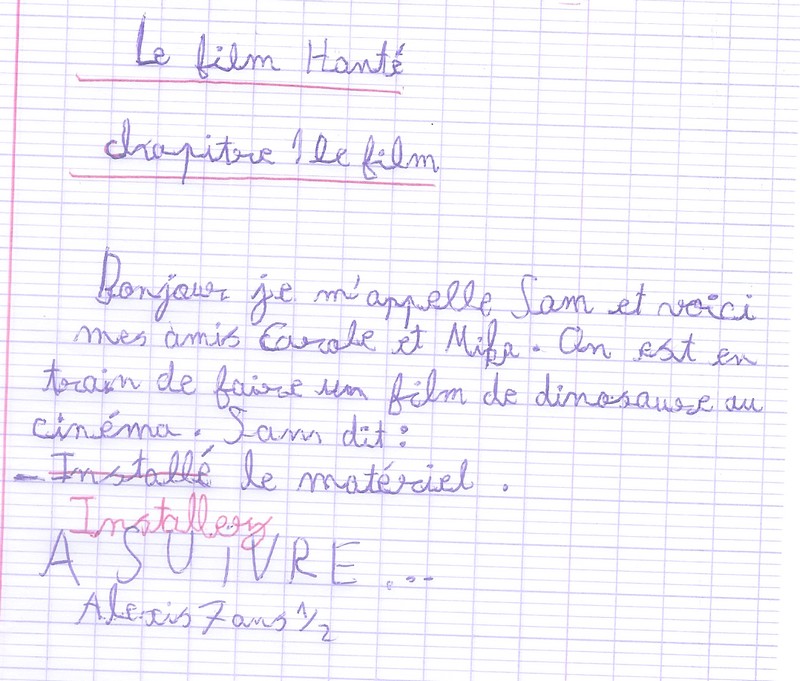 Le film Hanté
chapitre 1 le film
Bonjour je m'appelle Sam et voici
mes amis Carole et Mika. On est en
train de faire un film de dinosause au
cinéma. Sam dit :
- Installé le matériel.
Installez
A SUIVRE...
Alexis 7 ans 1/2